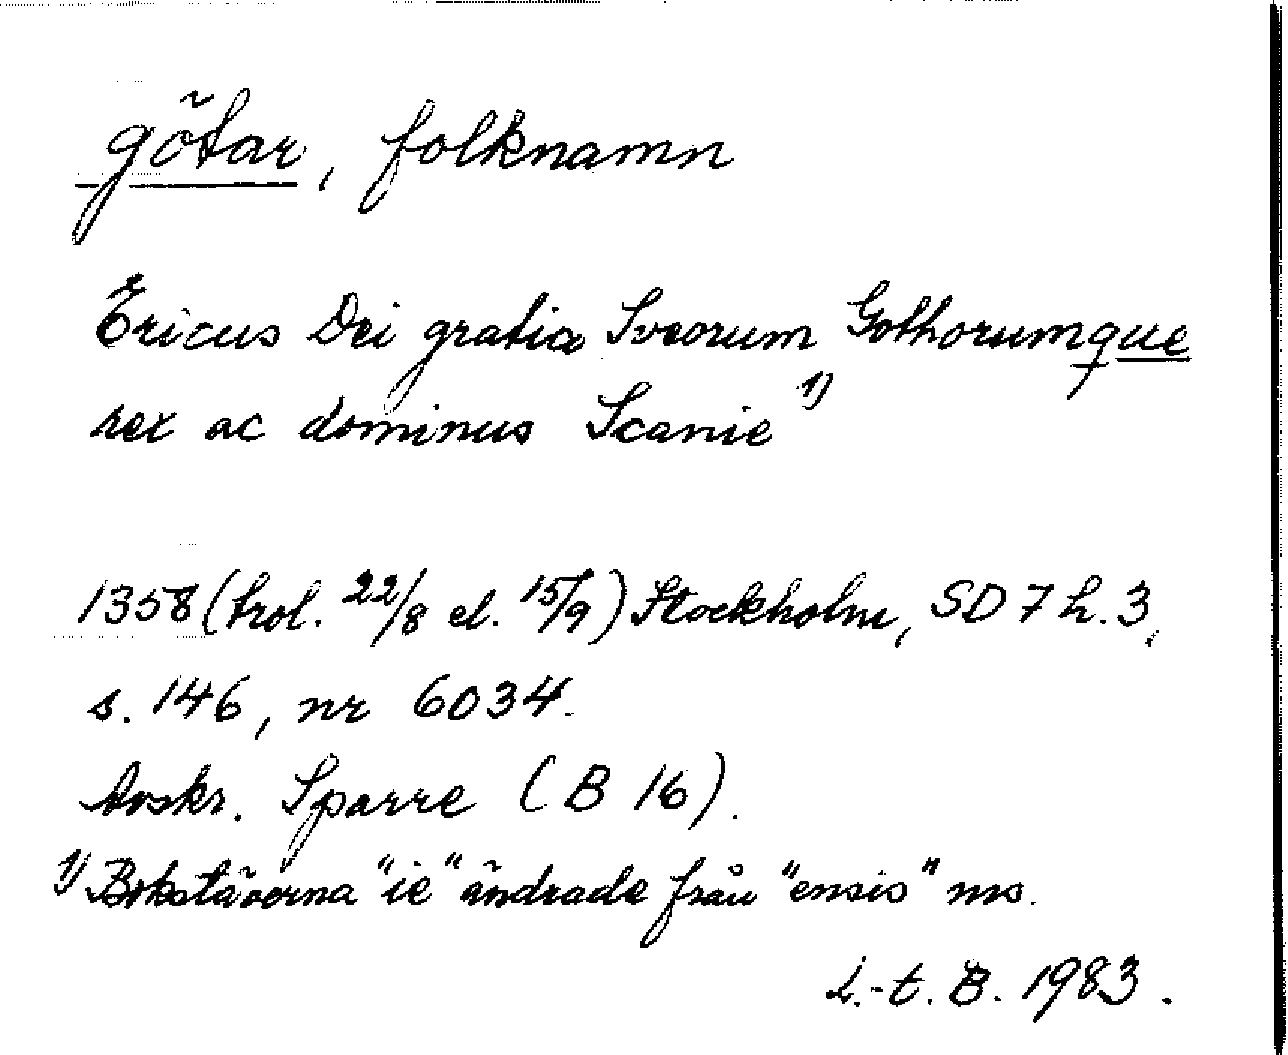 götar, folknamn
Ericus Dei gratia Sveorum Gothorumque
rex ac dominus Scanie 1)
1358 (trol. 22/8 el. 15/9) Stockholm, SD 7 h. 3,
s. 146, nr 6034.
Avskr. Sparre (B 16).
1) Bokstäverna "ie" ändrade från "ensis" ms.
L.-t. B. 1983.